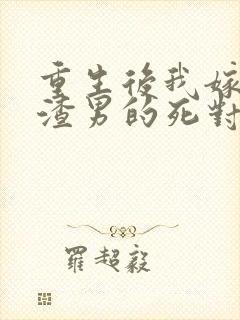 重生後我嫁
渣男的死對
羅超毅